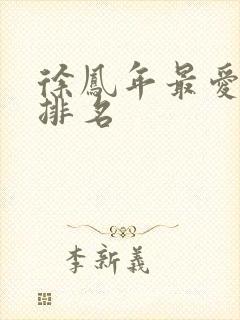 徐鳳年最愛
排名
李新義